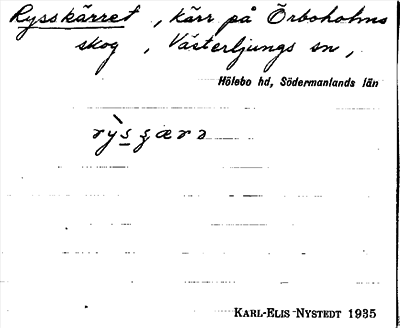 Rysskärret, kärr på Örboholms
skog, Västerljungs sn,
Hölebo hd, Södermanlands län
rỳs̲ʂærə
KARL-ELIS NYSTEDT 1935